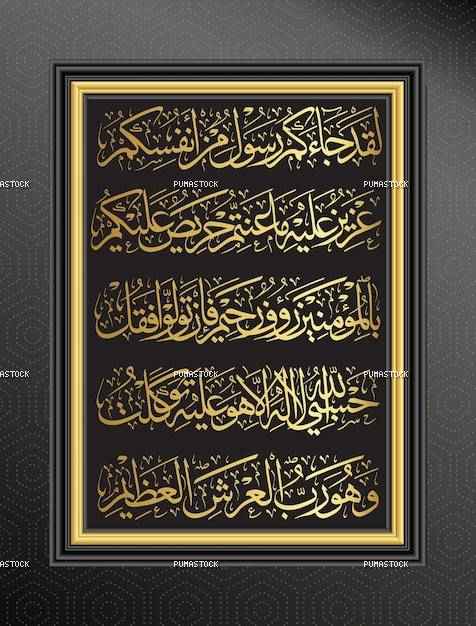 لقد جاءكم رسول من أنفسكم
عزيز عليه ما عنتم حريص عليكم
بالمؤمنين رءوف رحيم فإن تولوا فقل
حسبي الله لا إله إلا هو عليه توكلت
وهو رب العرش العظيم
PUMASTOCK PUMASTOCK PUMASTOCK
PUMASTOCK PUMASTOCK PUMASTOCK
PUMASTOCK PUMASTOCK PUMASTOCK